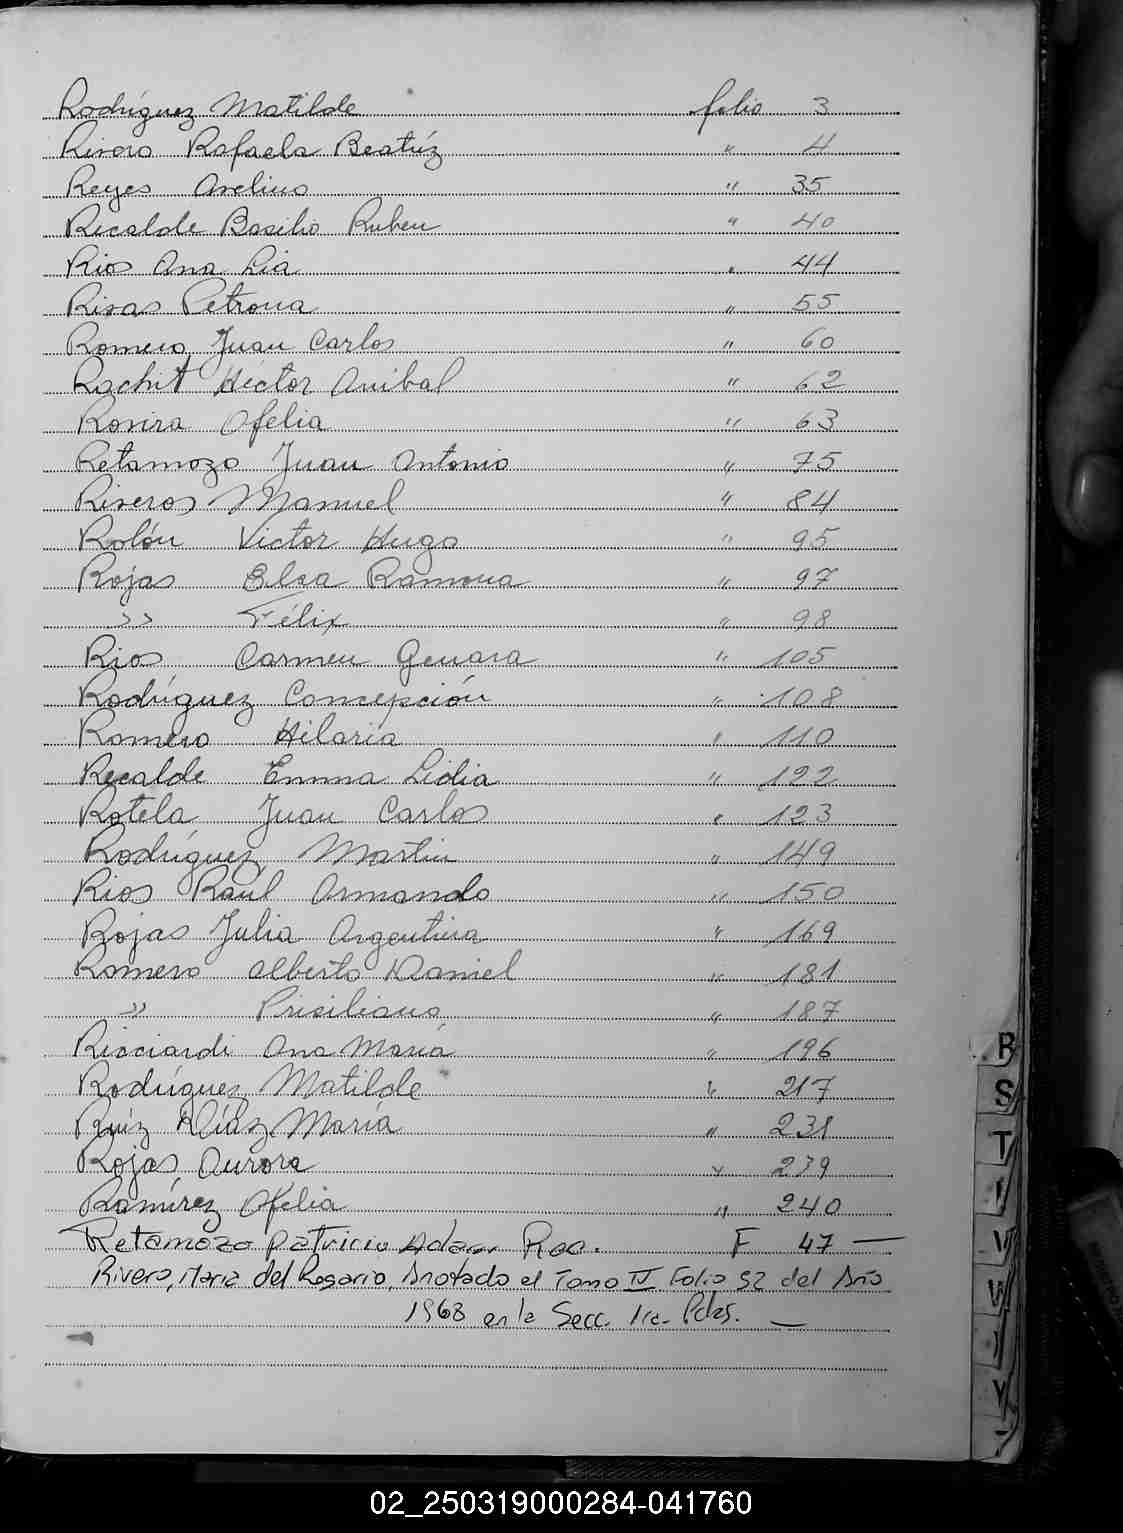 Rodríguez Matilde folio 3
Rivero Rafaela Beatríz " 4
Reyes Avelino " 35
Recalde Basilio Ruben " 40
Rios Ana Lia " 44
Rivas Petrona " 55
Romero Juan Carlos " 60
Rachit Héctor Anibal " 62
Rovira Ofelia " 63
Retamozo Juan Antonio " 75
Riveros Manuel " 84
Rolón Victor Hugo " 95
Rojas Elsa Ramona " 97
" Félix " 98
Rios Carmen Genara " 105
Rodríguez Concepción " 108
Romero Hilaria " 110
Recalde Emma Lidia " 122
Rotela Juan Carlos " 123
Rodríguez Martin " 149
Rios Raúl Armando " 150
Rojas Julia Argentina " 169
Romero Alberto Daniel " 181
" Prisiliano " 187
Ricciardi Ana María " 196
Rodríguez Matilde " 217
Ruiz Díaz María " 231
Rojas Aurora " 239
Ramírez Ofelia " 240
Retamozo Patricio Adan F 47 —
Rivero, Maria del Rosario, Anotado el Tomo IV Folio 52 del Año
1968 en la Secc. 1ra. Pdas. —
R
S
T
V
W
Y
02_250319000284-041760